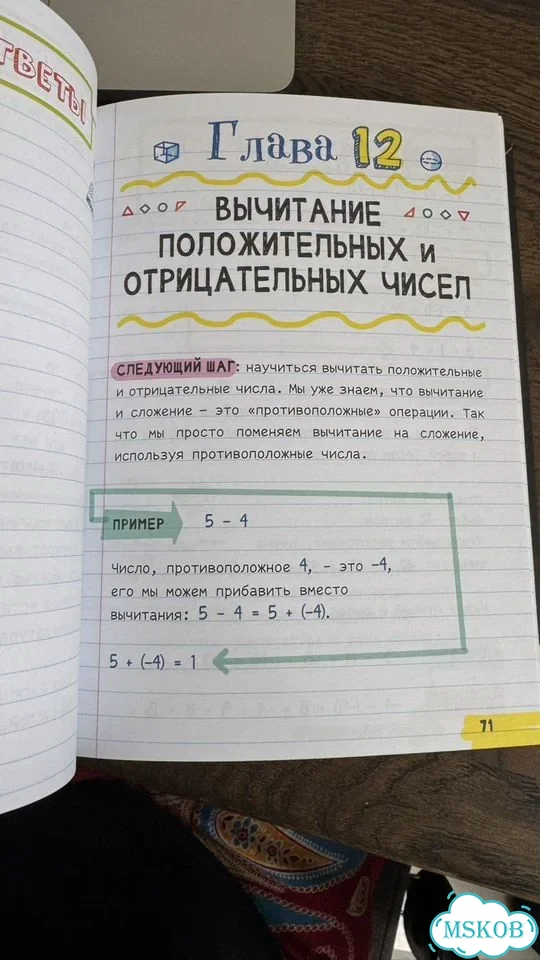 ТВЕТЫ
Глава 12
ВЫЧИТАНИЕ
ПОЛОЖИТЕЛЬНЫХ И
ОТРИЦАТЕЛЬНЫХ ЧИСЕЛ
СЛЕДУЮЩИЙ ШАГ: научиться вычитать положительные
и отрицательные числа. Мы уже знаем, что вычитание
и сложение – это «противоположные» операции. Так
что мы просто поменяем вычитание на сложение,
используя противоположные числа.
ПРИМЕР 5 – 4
Число, противоположное 4, – это –4,
его мы можем прибавить вместо
вычитания: 5 – 4 = 5 + (–4).
5 + (–4) = 1
71
MSKOB